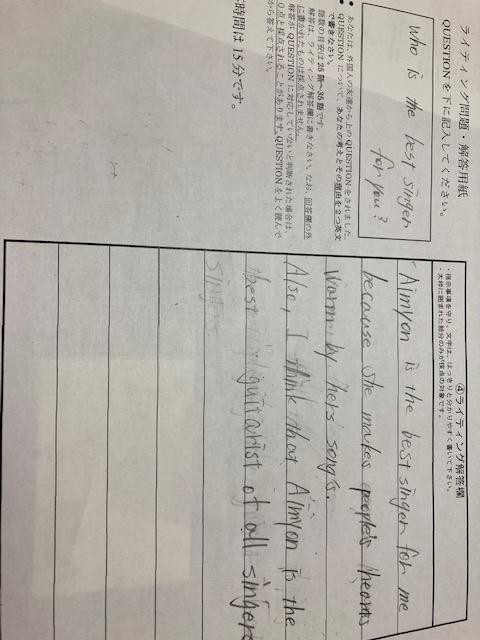 ライティング問題・解答用紙
QUESTION を下に記入してください。
Who is the best singer
for you?
あなたは、外国人の友達から上の QUESTION をされました。
QUESTION について、あなたの考えとその理由を2つ英文
で書きなさい。
語数の目安は 25 語~35 語です。
解答は、ライティング解答欄に書きなさい。なお、回答欄の外
に書かれたものは採点されません。
解答が QUESTION に対応していないと判断された場合は
0点と採点されることがあります。QUESTION をよく読んで
から答えて下さい。
時間は 15 分です。
④ライティング解答欄
・指示事項を守り、文字は、はっきりと分かりやすく書いて下さい。
・太枠に囲まれた部分のみが採点の対象です。
Aimyon is the best singer for me
because she makes people's hearts
warm by hers songs.
Also, I think that Aimyon is the
best guitarist of all singers